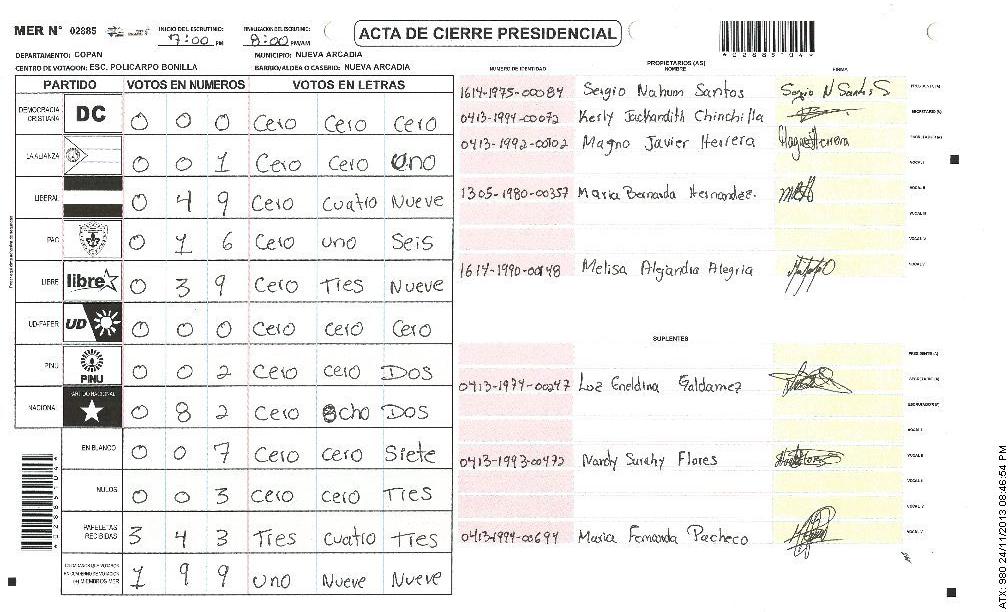 MER N° 02885 INICIO DEL ESCRUTINIO: 7:00 PM FINALIZACION DEL ESCRUTINIO: 8:00 PM/AM ACTA DE CIERRE PRESIDENCIAL
DEPARTAMENTO: COPAN MUNICIPIO: NUEVA ARCADIA
CENTRO DE VOTACION: ESC. POLICARPO BONILLA BARRIO/ALDEA O CASERIO: NUEVA ARCADIA
PARTIDO VOTOS EN NUMEROS VOTOS EN LETRAS
DEMOCRACIA CRISTIANA DC 0 0 0 Cero Cero Cero
LA ALIANZA 0 0 1 Cero Cero Uno
LIBERAL 0 4 9 Cero Cuatro Nueve
PAC 0 1 6 Cero uno Seis
LIBRE libre 0 3 9 Cero Tres Nueve
UD-FAPER UD 0 0 0 Cero Cero Cero
PINU PINU 0 0 2 Cero Cero Dos
NACIONAL PARTIDO NACIONAL 0 8 2 Cero Ocho Dos
EN BLANCO 0 0 7 Cero Cero Siete
NULOS 0 0 3 Cero Cero Tres
PAPELETAS RECIBIDAS 3 4 3 Tres Cuatro Tres
1 9 9 Uno Nueve Nueve
PROPIETARIOS (AS)
NUMERO DE IDENTIDAD NOMBRE FIRMA
1614-1975-00084 Sergio Nahum Santos Sergio N Santos S PRESIDENTE (A)
0413-1994-00072 Kerly Jackandith Chinchilla SECRETARIO (A)
0413-1992-00102 Magno Javier Herrera Magno Herrera ESCRUTADOR (A)
VOCAL I
1305-1980-00357 Maria Bernarda Hernandez. VOCAL II
VOCAL III
VOCAL IV
1614-1990-00148 Melisa Alejandra Alegria VOCAL V
SUPLENTES
PRESIDENTE (A)
0413-1974-00247 Luz Eneldina Galdamez SECRETARIO (A)
ESCRUTADOR (A)
VOCAL I
0413-1993-00472 Nardy Surahy Flores VOCAL II
VOCAL III
VOCAL IV
0413-1994-00694 Maria Fernanda Pacheco VOCAL V
ATX: 980 24/11/2013 08:46:54 PM